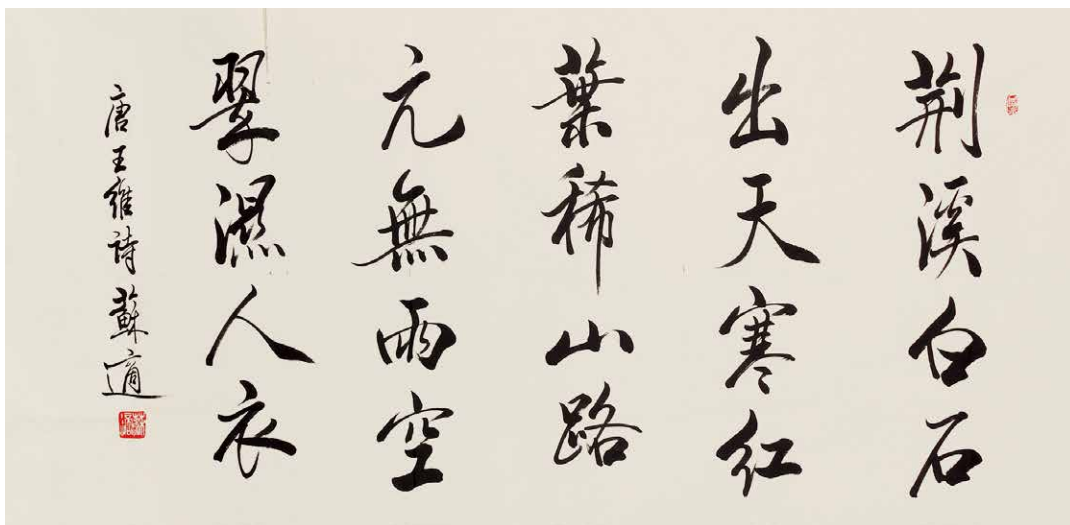 荆溪白石
出天寒红
葉稀山路
元無雨空
翠濕人衣
唐王維詩 蘇適